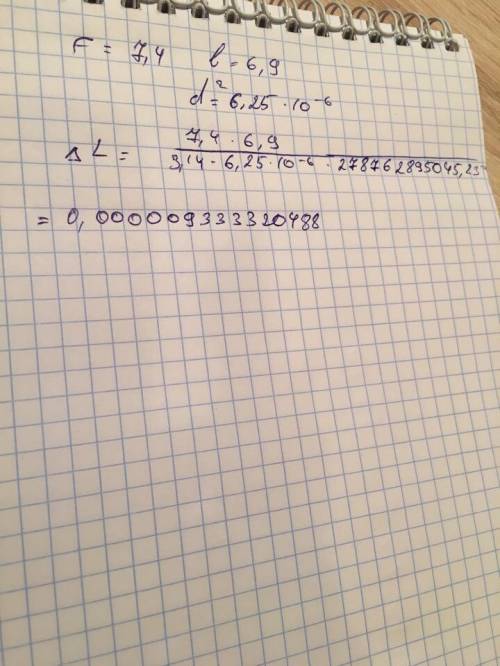 F = 7,4 l = 6,9
d² = 6,25 · 10⁻⁶
7,4 · 6,9
Δ L =
3,14 · 6,25 · 10⁻⁶ · 278762895045,25
= 0,000009333320488